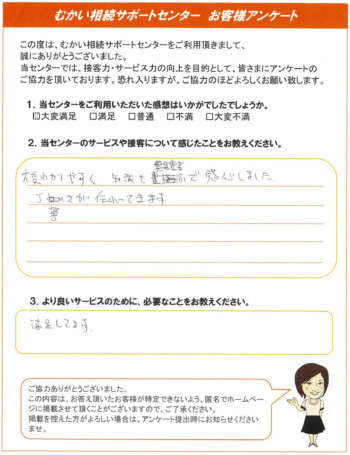 むかい相続サポートセンター お客様アンケート
この度は、むかい相続サポートセンターをご利用頂きまして、
誠にありがとうございました。
当センターでは、接客力・サービス力の向上を目的として、皆さまにアンケートの
ご協力を頂いております。恐れ入りますが、ご協力のほどよろしくお願い致します。
1. 当センターをご利用いただいた感想はいかがでしたでしょうか。
☑大変満足 □満足 □普通 □不満 □大変不満
2. 当センターのサービスや接客について感じたことをお教えください。
大変わかりやすく 知識も で感心しました。
丁寧さが伝わってきます
3. より良いサービスのために、必要なことをお教えください。
満足してます。
ご協力ありがとうございました。
この内容は、お答え頂いたお客様が特定できないよう、匿名でホームペー
ジに掲載させて頂くことがございますので、ご了承ください。
掲載を控えた方がよろしい場合は、アンケート提出時にお知らせください
ませ。